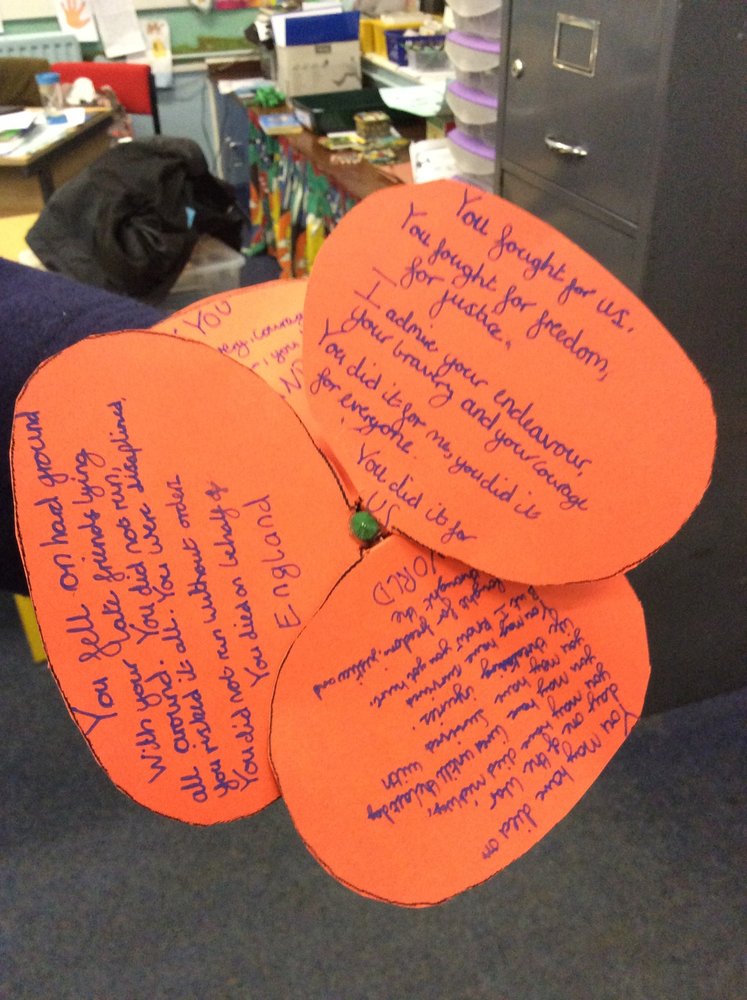 You fought for us.
You fought for freedom,
for justice.
I admire your endeavour,
your bravery and your courage
You did it for me, you did it
for everyone.
You did it for
US
YOU
courage
you
You fell on hard ground
With your late friends lying
around. You did not run,
you risked it all. You were disciplined,
all did not run without orders
You died on behalf of
England
You may have died on
day one of the war
you may have died midway,
you may have lived untill the last day
have survived with
injuries.
I know you got hurt.
fought for freedom justice and
brought the
WORLD